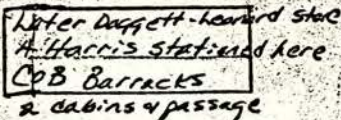 Later Daggett-Leonard store
A. Harris stationed here
COB Barracks
2 cabins & passage